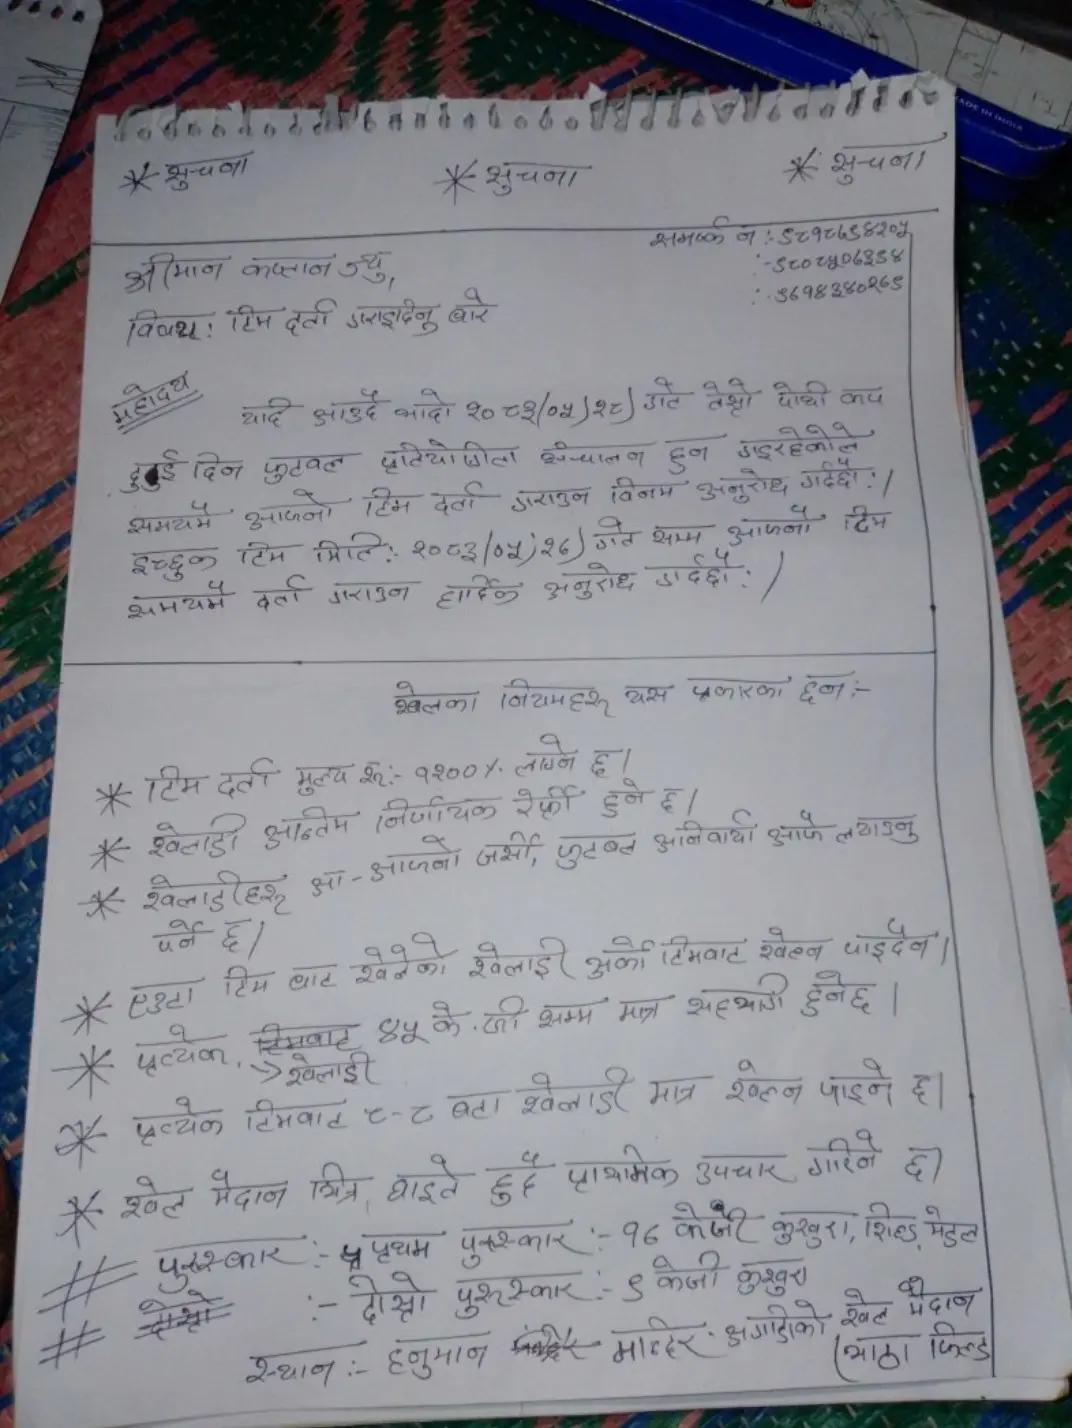 * सुचना * सुचना * सुचना
समर्प्क न :- ९८१८७९४२०५
श्रीमान कप्तान ज्यु,
:- ९८०८५०६३९४
:- ९७१४३४०२६९
विषय: टिम दर्ता गराइदिनु बारे
महोदय
यदि आउदै भादो २०८३/०५/२८) गते तेस्रो पोथी कप
दुई दिन फुटवल प्रतियोगिता संन्चालन हुन गइरहेकोले
समयमै आफ्नो टिम दर्ता गराउन विनम अनुरोध गर्दछौ:/
इच्छुक टिम मिति: २०८३/०५/२६) गते सम्म आफ्नो टिम
समयमै दर्ता गराउन हार्दिक अनुरोध गर्दछौ:/
खेलका नियमहरू यस प्रकारका छन:-
* टिम दर्ता मुल्य रू:- १२००%. लाग्ने छ।
* खेलाडी अन्तिम निर्णायक रेफ्री हुने छ।
* खेलाडीहरू आ-आफ्नो जर्सी, फुटबल अनिवार्य आफै ल्याउनु
पर्ने छ।
* एउटा टिम बाट खेलेको खेलाडी अर्को टिमवाट खेल्न पाइदैन।
* प्रत्येक. टिमवाट ४५ के.जी सम्म मात्र सहभागी हुनेछ।
→ खेलाडी
* प्रत्येक टिमवाट ८-८ वटा खेलाडी मात्र खेल्न पाइने छ।
* खेल मैदान भित्र, घाइते हुदै प्राथमिक उपचार गरिने छ।
# पुरूस्कार :- प्रथम पुरूस्कार :- १६ केजी कुखुरा, शिल्ड, मेडल
# दोस्रो :- दोस्रो पुरूस्कार :- ९ केजी कुखुरा
स्थान :- हनुमान मन्दिर अगाडीको खेल मैदान
(माठा फिल्ड